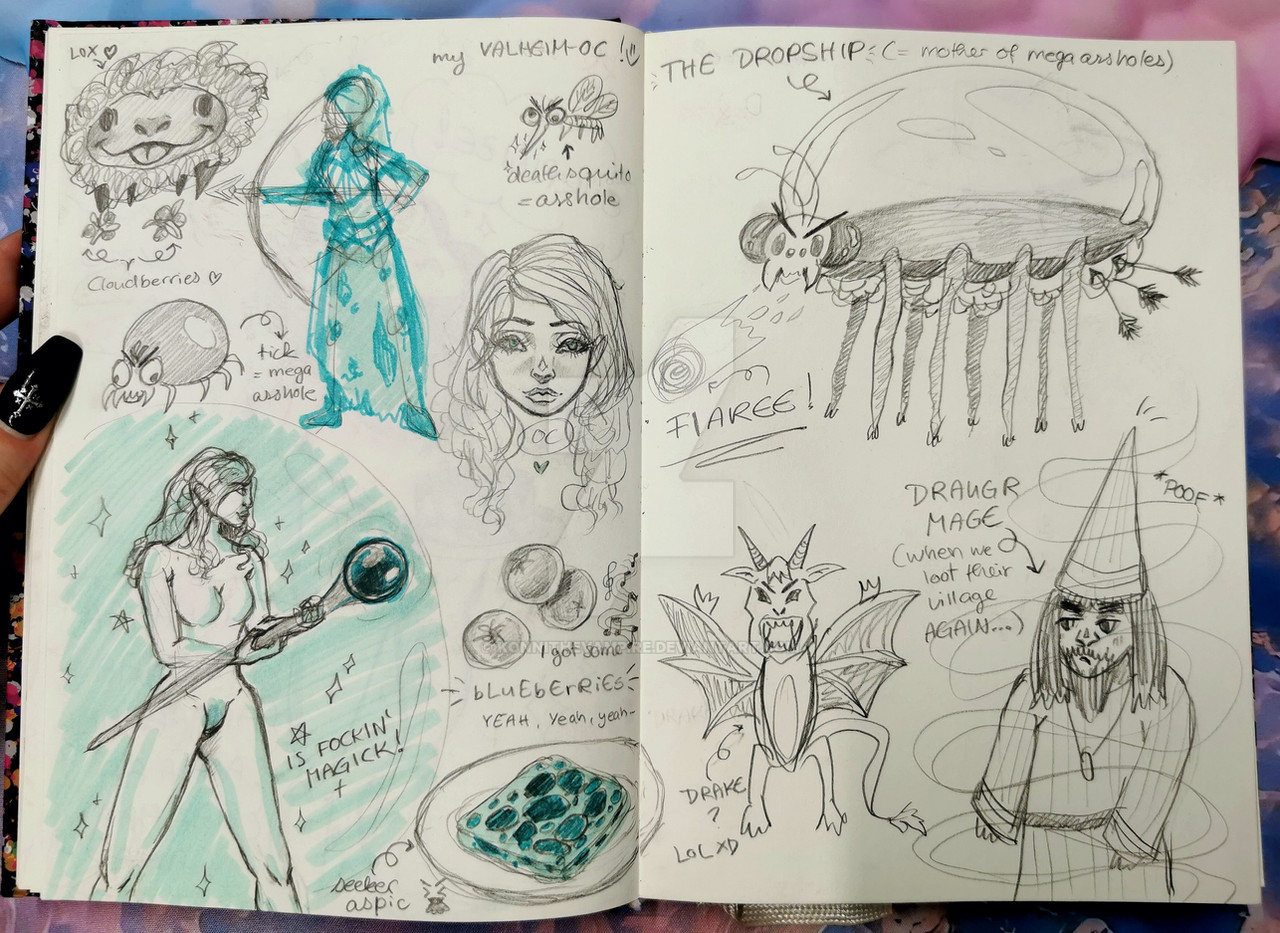 LOX ♡
my VALHEIM-OC !
deathsquito
= asshole
Cloudberries ♡
tick
= mega
asshole
OC
IS FOCKIN'
MAGICK!
I got some
bLuEbErRiES
YEAH, Yeah, yeah~
seeker
aspic
THE DROPSHIP (= mother of megaassholes)
FIAREE!
DRAUGR
MAGE
(when we
loot their
village
AGAIN...)
*POOF*
DRAKE
?
LOL XD